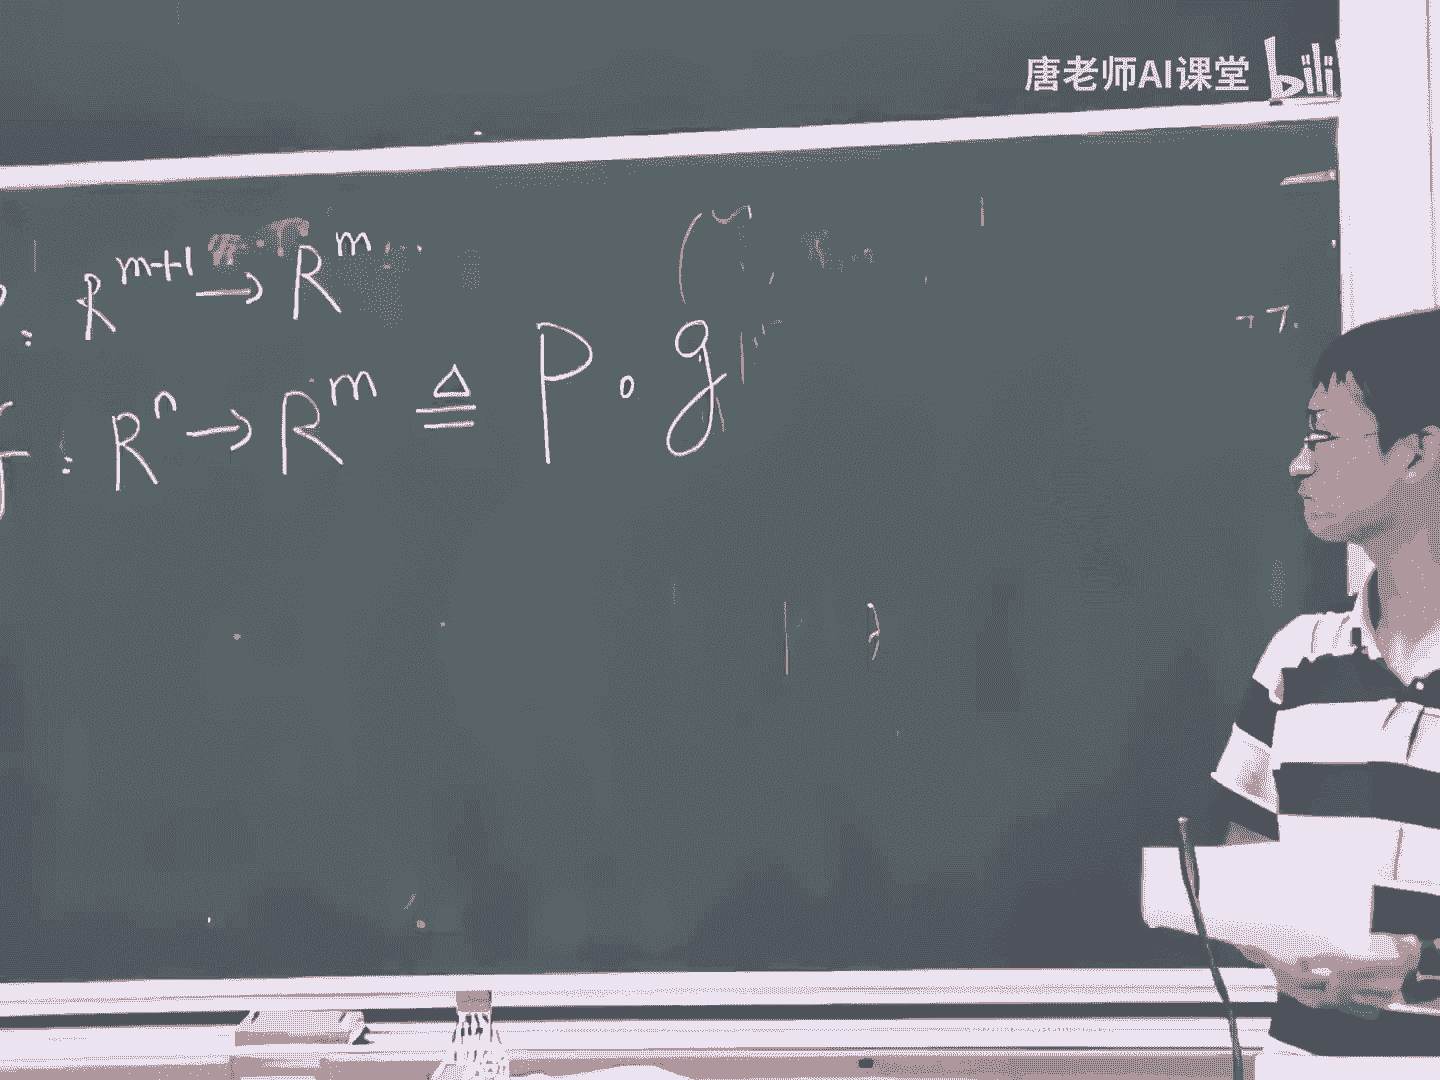 唐老师AI课堂 bili
: R^{m+1} → R^m
: R^n → R^m ≜ P∘g